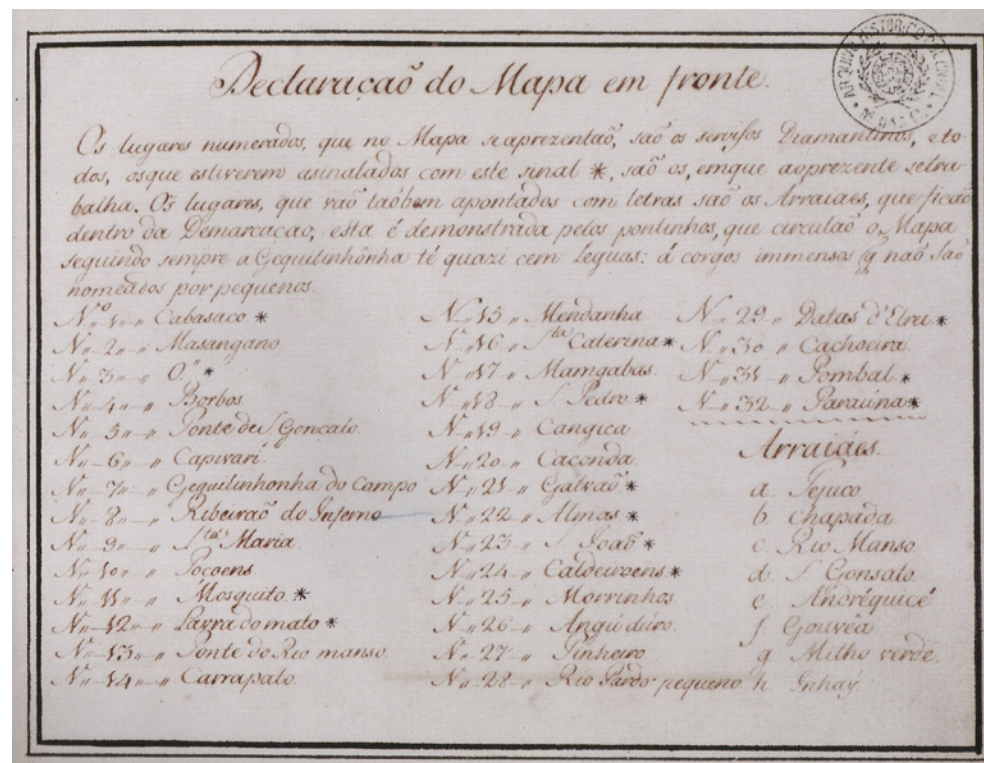 Declaraçaõ do Mapa em fronte.
Os lugares numerados, que no Mapa se aprezentaõ, saõ os serviſos Diamantinos, e to-
dos, os que estiverem asinalados com este sinal *, saõ os, emque ao prezente setra-
balha. Os lugares, que vaõ taõbem apontados com letras saõ os Arraiaes, que ficaõ
dentro da Demarcacao, esta é demonstrada pelos pontinhos, que circulaõ o Mapa
seguindo sempre a Gequitinhônha té quazi cem leguas: á corgos immensos q naõ saõ
nomeados por pequenos.
Nº 1 Cabasaco *
N 2 Masangano
N 3 O. *
N 4 Borbos
N 5 Ponte de S. Goncalo
N 6 Capivarí
N 7 Gequitinhonha do Campo
N 8 Ribeiraõ do Inferno
N 9 Sta Maria
N 10 Pocoens
N 11 Mosquito *
N 12 Lavra do mato *
N 13 Ponte do Rio manso
N 14 Carrapato
N 15 Mendanha
N 16 Sta Caterina *
N 17 Mamgabas
N 18 S. Pedro *
N 19 Cangica
N 20 Caconda
N 21 Galvaõ *
N 22 Almas *
N 23 S. Joaõ *
N 24 Caldeiroens *
N 25 Morrinhos
N 26 Angú duro
N 27 Pinheiro
N 28 Rio Pardo pequeno
N 29 Datas d'Elrei *
N 30 Cachoeira
N 31 Pombal *
N 32 Parauna *
Arraiáes.
a. Tejuco
b. chapada
c. Rio Manso
d. S. Gonsalo
e. Andréquicé
f. Gouvêa
g. Milho verde
h. Inhaý
ARQUIVO HISTORICO COLONIAL